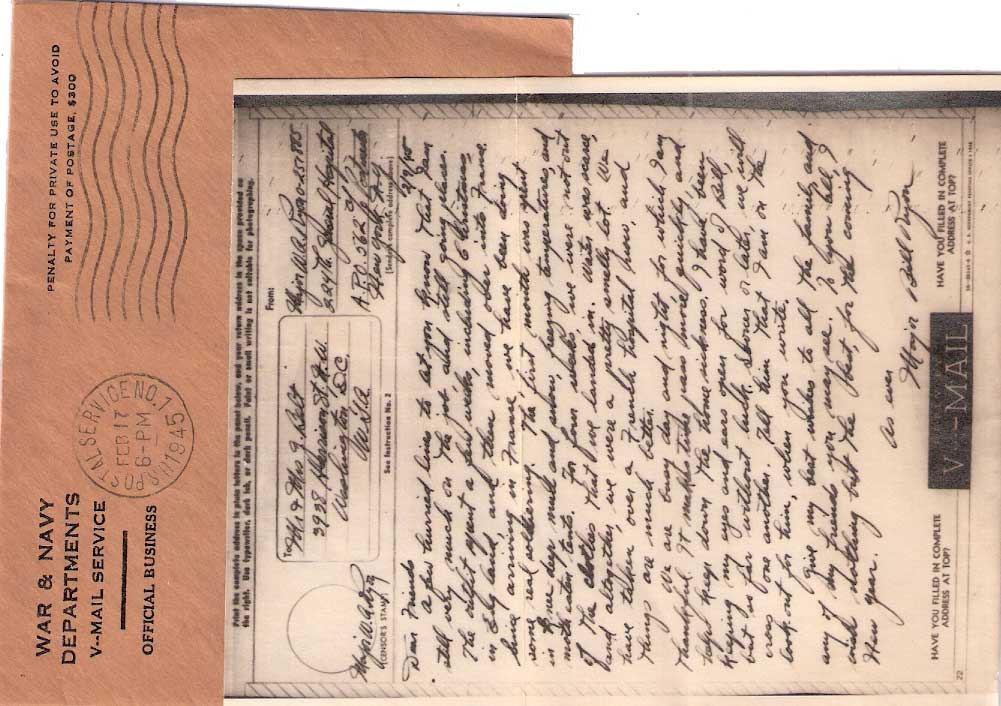 WAR & NAVY
DEPARTMENTS
V-MAIL SERVICE
OFFICIAL BUSINESS
PENALTY FOR PRIVATE USE TO AVOID
PAYMENT OF POSTAGE, $300
U.S. POSTAL SERVICE NO. 1
FEB 17
6-PM
1945
Print the complete address in plain letters in the panel below, and your return address in the space provided on
the right. Use typewriter, dark ink, or dark pencil. Faint or small writing is not suitable for photographing.
To
Mr & Mrs J. Belt
3938 Harrison St. N.W.
Washington D.C.
U.S.A.
From:
Major W.A. Ryan
224th General Hospital
A.P.O. 562
New York, N.Y.
(Sender's complete address)
2/9/45
CENSOR'S STAMP
See Instruction No. 2
Dear Friends
a few hurried lines to let you know that I am
still very much on the job and still going places.
The outfit spent a few weeks, including Christmas
in England and then moved over into France.
Since arriving in France we have been doing
some real soldering. The first month was spent
in knee deep mud and snow, freezing temperatures, and
in tents. For four weeks, we were not out
of the clothes that we landed in. Water was scarce,
and altogether, we were a pretty smelly lot. We
have taken over a French hospital now, and
things are much better.
We are busy day and night for which I am
thankful. It makes time pass more quickly and
helps keep down the home sickness. I have been
keeping my eyes and ears open for word of Bill,
but so far without luck. Sooner or later, we will
cross one another. Tell him that I am on the
look out for him, when you write.
Give my best wishes to all the family, and
any of my friends you may see. To you all, I
wish nothing but the best, for the coming
New year.
As ever
Major Bill Ryan
HAVE YOU FILLED IN COMPLETE
ADDRESS AT TOP?
V-MAIL
HAVE YOU FILLED IN COMPLETE
ADDRESS AT TOP?
22